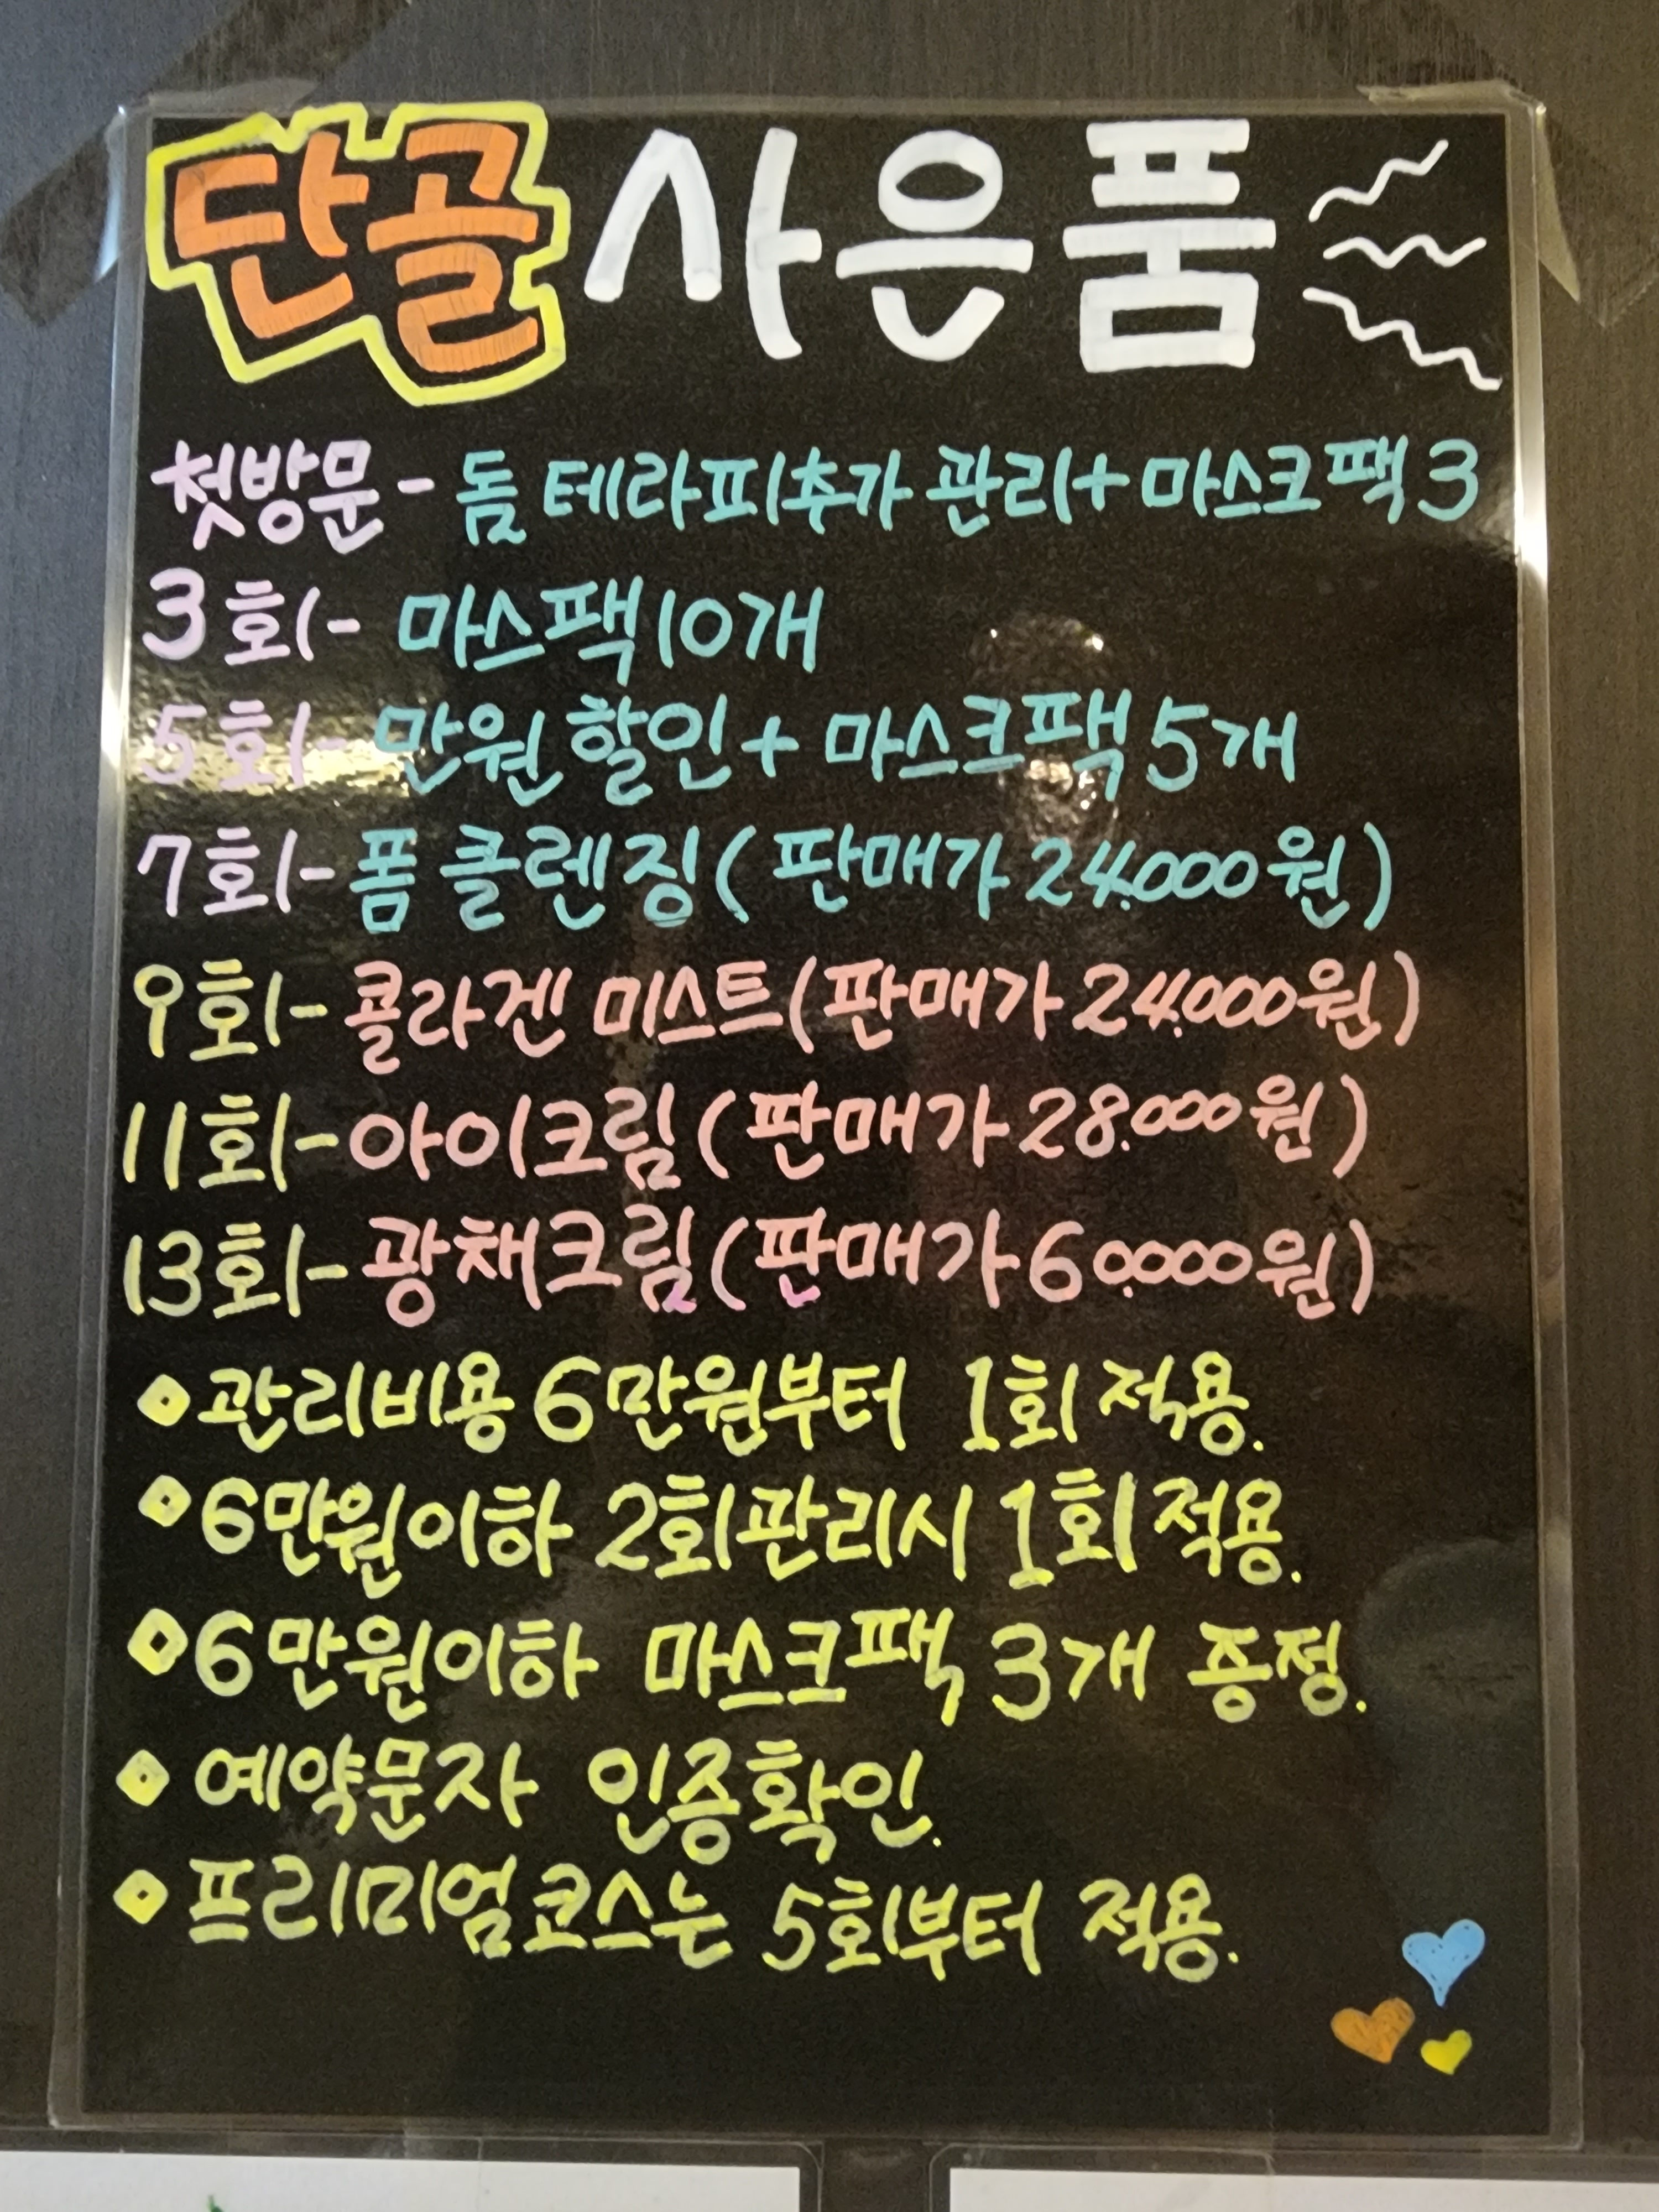 단골 사은품
첫방문- 돔 테라피추가 관리+ 마스크팩 3
3회- 마스팩 10개
5회- 만원 할인+ 마스크팩 5개
7회- 폼 클렌징( 판매가 24.000원)
9회- 콜라겐 미스트(판매가 24.000원)
11회- 아이크림( 판매가 28.000원)
13회- 광채크림(판매가 60.000원)
관리비용 6만원부터 1회 적용.
6만원이하 2회관리시 1회 적용.
6만원이하 마스크팩 3개 증정.
예약문자 인증확인.
프리미엄코스는 5회부터 적용.